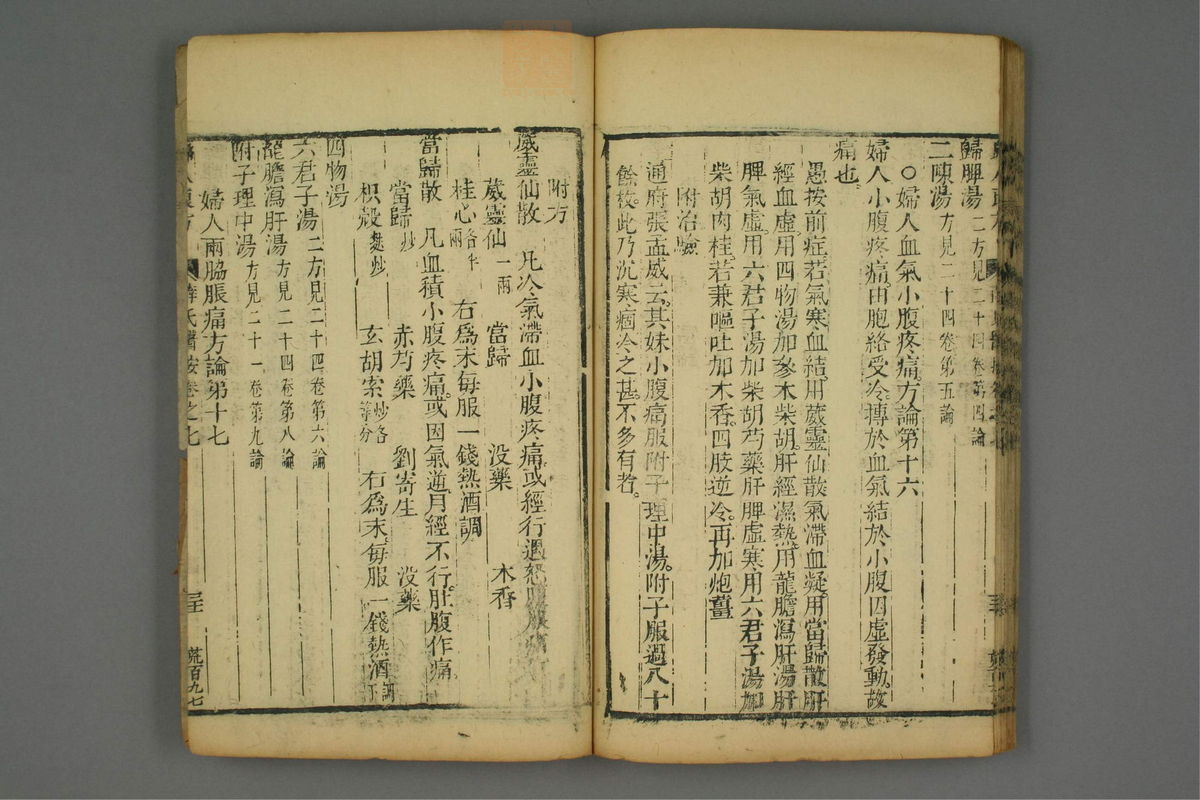 歸脾湯 二方見二十四卷第四論
二陳湯 方見二十四卷第五論
○婦人血氣小腹疼痛方論第十六
婦人小腹疼痛由胞絡受冷搏於血氣結於小腹因虛發動故
痛也
愚按前症若氣寒血結用葳靈仙散氣滯血凝用當歸散肝
經血虛用四物湯加參朮柴胡肝經濕熱用龍膽瀉肝湯肝
脾氣虛用六君子湯加柴胡芍藥肝脾虛寒用六君子湯加
柴胡肉桂若兼嘔吐加木香四肢逆冷再加炮薑
附治驗
通府張孟威云其妹小腹痛服附子理中湯附子服過八十
餘枚此乃沉寒痼冷之甚不多有者
附方
葳靈仙散 凡冷氣滯血小腹疼痛或經行遇怒
葳靈仙一兩 當歸 沒藥 木香
桂心各半兩 右為末每服一錢熱酒調
當歸散 凡血積小腹疼痛或因氣逆月經不行肚腹作痛
當歸炒 赤芍藥 劉寄生 沒藥
枳殼麩炒 玄胡索炒各等分 右為末每服一錢熱酒調下
四物湯
六君子湯 二方見二十四卷第六論
龍膽瀉肝湯 方見二十四卷第八論
附子理中湯 方見二十一卷第九論
婦人兩脇脹痛方論第十七
薛氏醫按卷之七 荒百九七